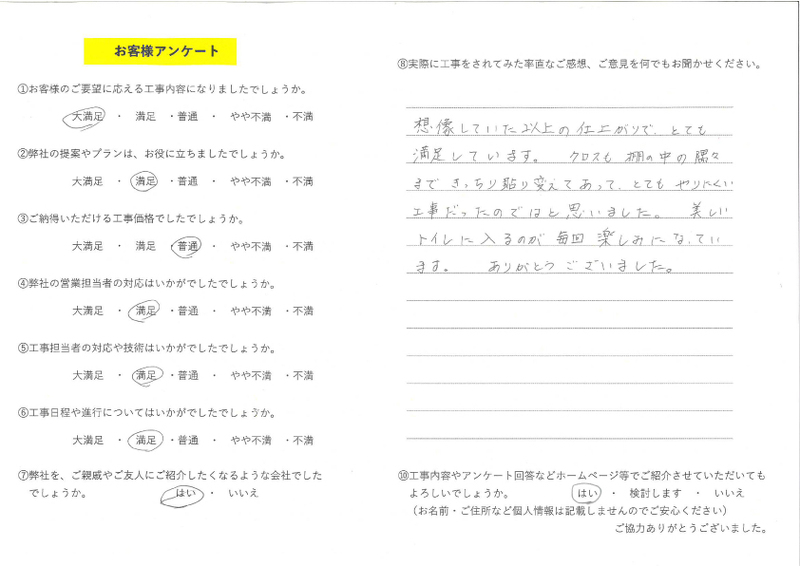 お客様アンケート
①お客様のご要望に応える工事内容になりましたでしょうか。
大満足 ・ 満足 ・普通 ・ やや不満 ・不満
②弊社の提案やプランは、お役に立ちましたでしょうか。
大満足 ・ 満足 ・普通 ・ やや不満 ・不満
③ご納得いただける工事価格でしたでしょうか。
大満足 ・ 満足 ・普通 ・ やや不満 ・不満
④弊社の営業担当者の対応はいかがでしたでしょうか。
大満足 ・ 満足 ・普通 ・ やや不満 ・不満
⑤工事担当者の対応や技術はいかがでしたでしょうか。
大満足 ・ 満足 ・普通 ・ やや不満 ・不満
⑥工事日程や進行についてはいかがでしたでしょうか。
大満足 ・ 満足 ・普通 ・ やや不満 ・不満
⑦弊社を、ご親戚やご友人にご紹介したくなるような会社でした
でしょうか。 はい ・ いいえ
⑧実際に工事をされてみた率直なご感想、ご意見を何でもお聞かせください。
想像していた以上の仕上がりで、とても
満足しています。 クロスも 棚の中の隅々
まで きっちり貼り変えてあって、とても やりにくい
工事だったのではと思いました。 美しい
トイレに入るのが 毎回 楽しみになってい
ます。 ありがとうございました。
⑩工事内容やアンケート回答などホームページ等でご紹介させていただいても
よろしいでしょうか。 はい ・ 検討します ・ いいえ
（お名前・ご住所など個人情報は記載しませんのでご安心ください）
ご協力ありがとうございました。